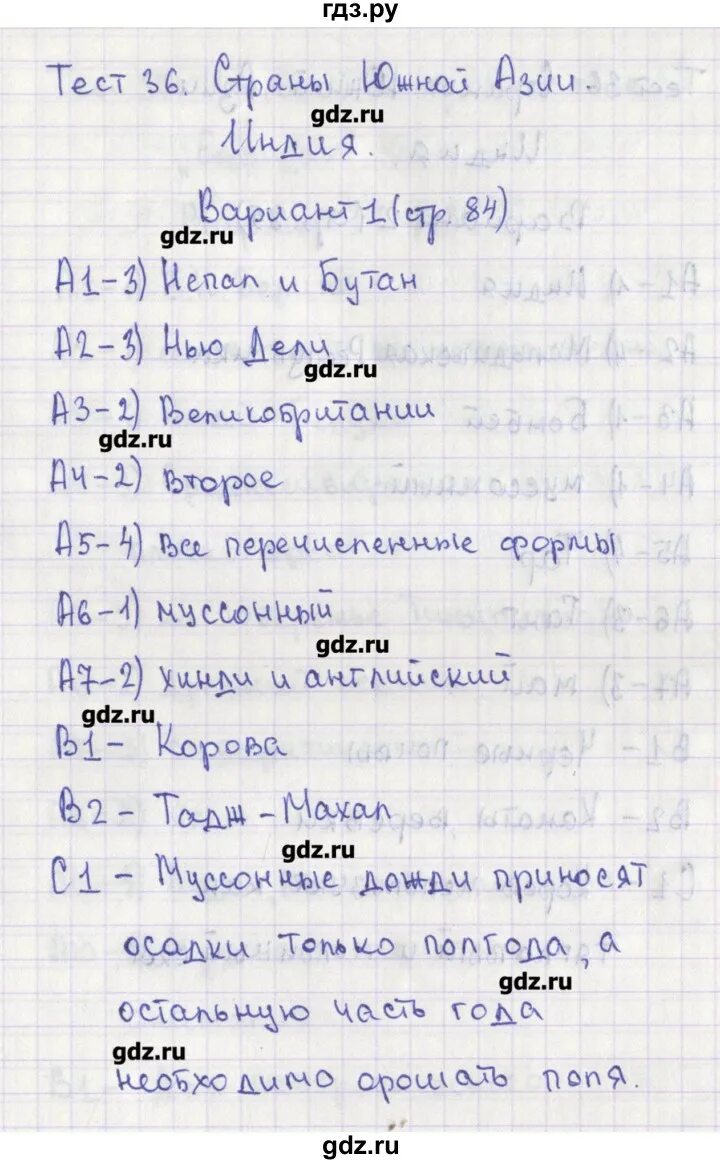 гдз.ру
Тест 36. Страны Южной Азии.
gdz.ru
Индия.
Вариант 1 (стр. 84)
gdz.ru
А1-3) Непал и Бутан
А2-3) Нью Дели
gdz.ru
А3-2) Великобритании
gdz.ru
А4-2) Второе
А5-4) Все перечисленные формы
А6-1) муссонный
gdz.ru
А7-2) хинди и английский
gdz.ru
В1- Корова
В2 - Тадж-Махал
gdz.ru
С1 - Муссонные дожди приносят
осадки только полгода, а
gdz.ru
остальную часть года
gdz.ru
необходимо орошать поля.
gdz.ru